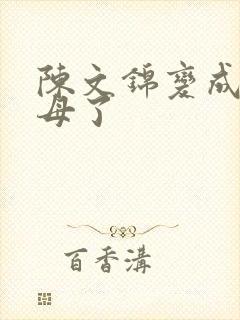 陳文錦變成
母了
百香溝